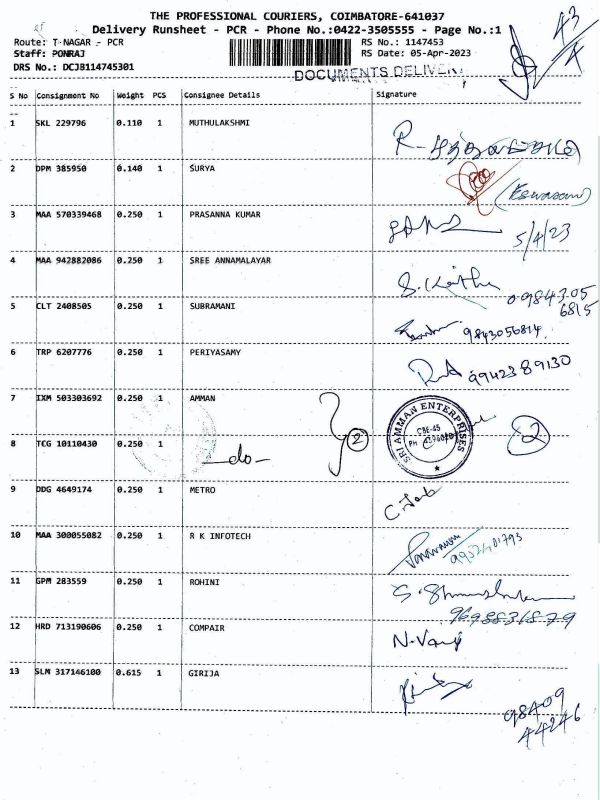 THE PROFESSIONAL COURIERS, COIMBATORE-641037
43
4
Delivery Runsheet - PCR - Phone No.:0422-3505555 - Page No.:1
Route: T-NAGAR - PCR
RS No.: 1147453
Staff: PONRAJ
RS Date: 05-Apr-2023
DRS No.: DCJB114745301
DOCUMENTS DELIVER
S No Consignment No Weight PCS Consignee Details Signature
1 SKL 229796 0.110 1 MUTHULAKSHMI
2 DPM 385950 0.140 1 SURYA
(Eswaran)
3 MAA 570339468 0.250 1 PRASANNA KUMAR
5/4/23
4 MAA 942882086 0.250 1 SREE ANNAMALAYAR
09843056815
5 CLT 2408505 0.250 1 SUBRAMANI
9843056814
6 TRP 6207776 0.250 1 PERIYASAMY
9942389130
7 IXM 503303692 0.250 1 AMMAN
SRI AMMAN ENTERPRISES
CBE-45
2
2
8 TCG 10110430 0.250 1 -do-
9 DDG 4649174 0.250 1 METRO
10 MAA 300055082 0.250 1 R K INFOTECH
11 GPM 283559 0.250 1 ROHINI
9698831879
12 HRD 713190606 0.250 1 COMPAIR
13 SLM 317146100 0.615 1 GIRIJA
98409
44246